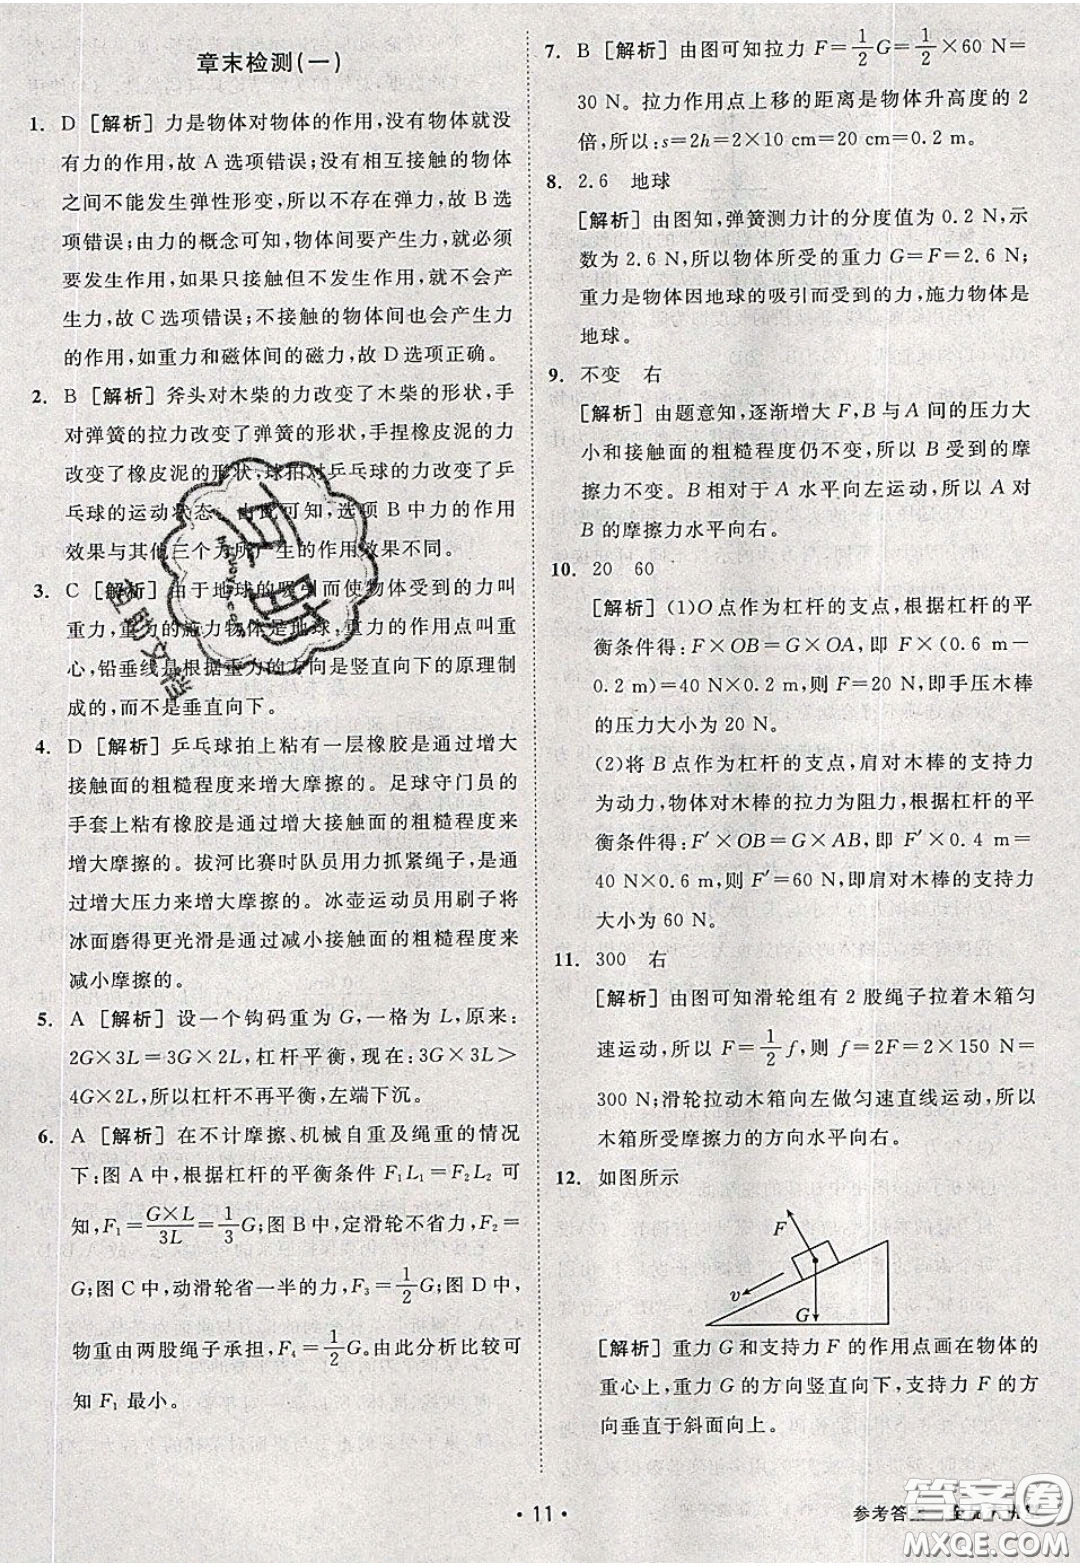 章末检测(一)
1. D [解析]力是物体对物体的作用,没有物体就没
有力的作用,故 A 选项错误;没有相互接触的物体
之间不能发生弹性形变,所以不存在弹力,故 B 选
项错误;由力的概念可知,物体间要产生力,就必须
要发生作用,如果只接触但不发生作用,就不会产
生力,故 C 选项错误;不接触的物体间也会产生力
的作用,如重力和磁体间的磁力,故 D 选项正确。
2. B [解析]斧头对木柴的力改变了木柴的形状,手
对弹簧的拉力改变了弹簧的形状,手捏橡皮泥的力
改变了橡皮泥的形状,球拍对乒乓球的力改变了乒
乓球的运动状态,由此可知,选项 B 中力的作用
效果与其他三个力所产生的作用效果不同。
3. C [解析]由于地球的吸引而使物体受到的力叫
重力,重力的施力物体是地球,重力的作用点叫重
心,铅垂线是根据重力的方向是竖直向下的原理制
成的,而不是垂直向下。
4. D [解析]乒乓球拍上粘有一层橡胶是通过增大
接触面的粗糙程度来增大摩擦的。足球守门员的
手套上粘有橡胶是通过增大接触面的粗糙程度来
增大摩擦的。拔河比赛时队员用力抓紧绳子,是通
过增大压力来增大摩擦的。冰壶运动员用刷子将
冰面磨得更光滑是通过减小接触面的粗糙程度来
减小摩擦的。
5. A [解析]设一个钩码重为 G,一格为 L,原来:
2G×3L=3G×2L,杠杆平衡,现在:3G×3L>
4G×2L,所以杠杆不再平衡,左端下沉。
6. A [解析]在不计摩擦、机械自重及绳重的情况
下:图 A 中,根据杠杆的平衡条件 F₁L₁=F₂L₂ 可
知,F₁=G×L/3L=1/3G;图 B 中,定滑轮不省力,F₂=
G;图 C 中,动滑轮省一半的力,F₃=1/2G;图 D 中,
物重由两股绳子承担,F₄=1/2G。由此分析比较可
知 F₁ 最小。
7. B [解析]由图可知拉力 F=1/2G=1/2×60 N=
30 N。拉力作用点上移的距离是物体升高度的 2
倍,所以:s=2h=2×10 cm=20 cm=0.2 m。
8. 2.6 地球
[解析]由图知,弹簧测力计的分度值为 0.2 N,示
数为 2.6 N,所以物体所受的重力 G=F=2.6 N;
重力是物体因地球的吸引而受到的力,施力物体是
地球。
9. 不变 右
[解析]由题意知,逐渐增大 F,B 与 A 间的压力大
小和接触面的粗糙程度仍不变,所以 B 受到的摩
擦力不变。B 相对于 A 水平向左运动,所以 A 对
B 的摩擦力水平向右。
10. 20 60
[解析](1)O 点作为杠杆的支点,根据杠杆的平
衡条件得:F×OB=G×OA,即 F×(0.6 m-
0.4 m)=40 N×0.2 m,则 F=20 N,即手压木棒
的压力大小为 20 N。
(2)将 B 点作为杠杆的支点,肩对木棒的支持力
为动力,物体对木棒的拉力为阻力,根据杠杆的平
衡条件得:F′×OB=G×AB,即 F′×0.4 m=
40 N×0.6 m,则 F′=60 N,即肩对木棒的支持力
大小为 60 N。
11. 300 右
[解析]由图可知滑轮组有 2 股绳子拉着木箱匀
速运动,所以 F=1/2f,则 f=2F=2×150 N=
300 N;滑轮拉动木箱向左做匀速直线运动,所以
木箱所受摩擦力的方向水平向右。
12. 如图所示
F
v
G
[解析]重力 G 和支持力 F 的作用点画在物体的
重心上,重力 G 的方向竖直向下,支持力 F 的方
向垂直于斜面向上。
互助
互助文档
· 11 ·
参考答
答案圈
MXQE.COM